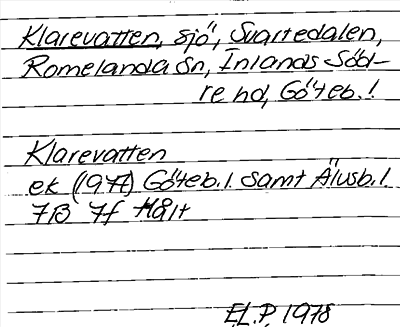 Klarevatten, sjö, Svartedalen,
Romelanda sn, Inlands Söd-
re hd, Göteb. l.
Klarevatten
ek (1977) Göteb. l. samt Älvsb. l.
7B 7f Hålt
E.L.P. 1978